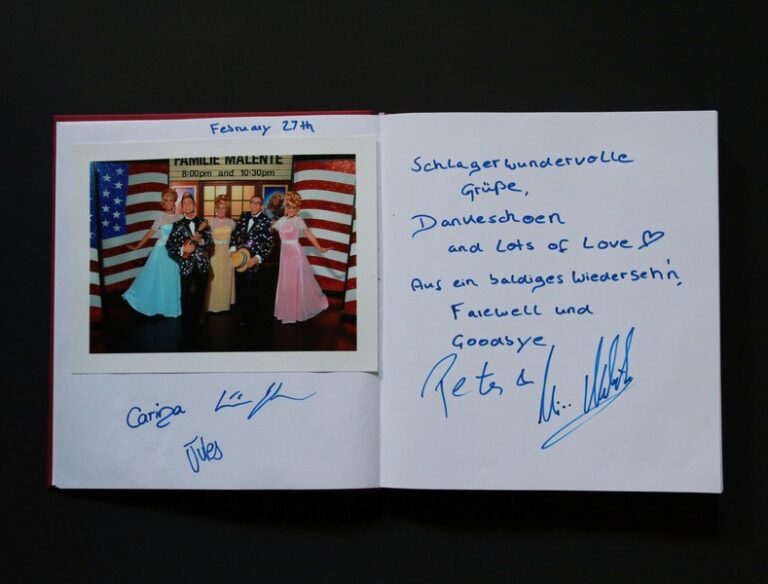 February 27th
FAMILIE MALENTE
8:00pm and 10:30pm
Carina
Jules
Schlagerwundervolle
Grüße,
Dankeschoen
and Lots of Love
Auf ein baldiges Wiederseh'n,
Farewell und
Goodbye
Peter &